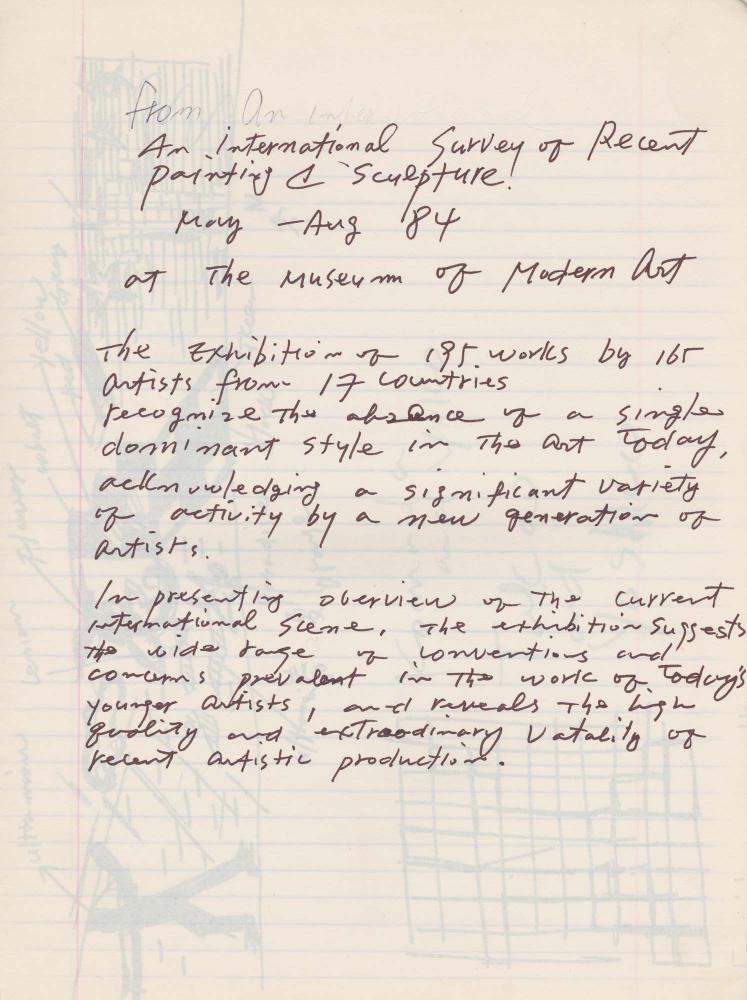 from An inter
An international Survey of Recent
painting & Sculpture.
May - Aug '84
at The Museum of Modern Art
The Exhibition of 195 works by 165
artists from 17 countries
recognize The absence of a single
dominant style in The art Today,
acknowledging a significant variety
of activity by a new generation of
artists.
In presenting oberview of The current
international Scene, The exhibition suggests
The wide range of conventions and
concerns prevalent in The work of Today's
younger artists, and reveals The high
quality and extraodinary Vatality of
recent artistic production.